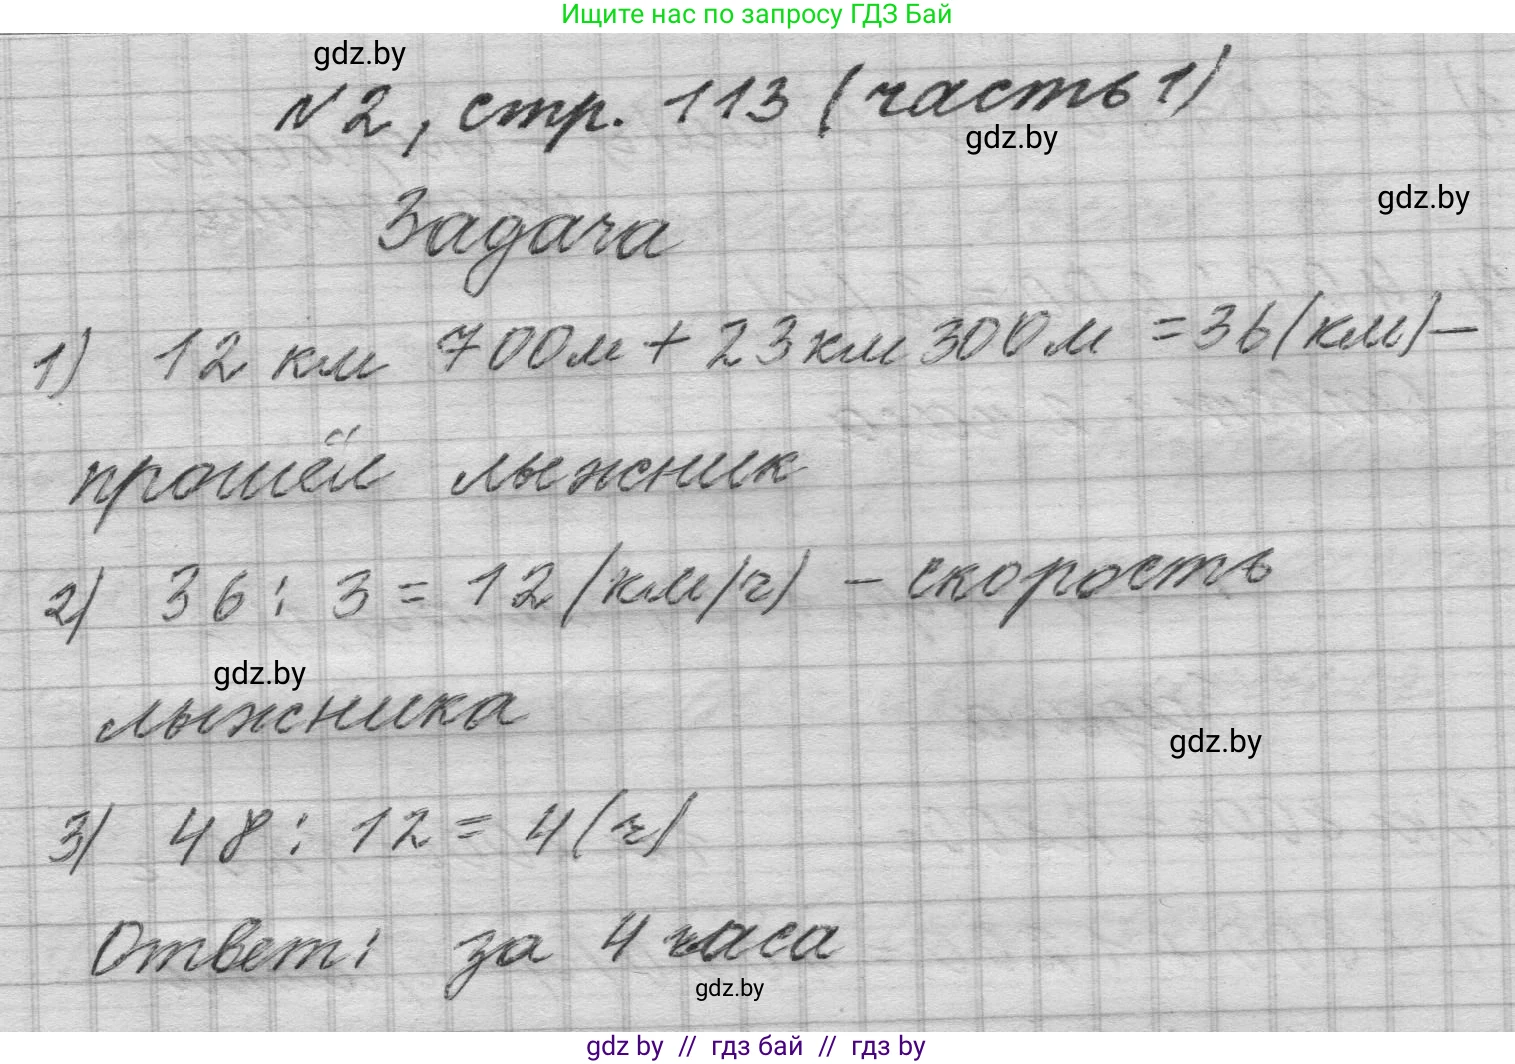 Ищите нас по запросу ГДЗ Бай
gdz.by
№2, стр. 113 (часть 1)
gdz.by
gdz.by
Задача
1) 12 км 700м + 23км 300м = 36(км) –
прошёл лыжник
2) 36 : 3 = 12 (км/ч) – скорость
gdz.by
лыжника
gdz.by
3) 48 : 12 = 4 (ч)
Ответ: за 4 часа
gdz.by
gdz by // гдз бай // гдз by